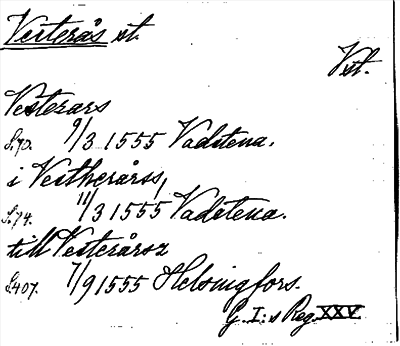 Vesterås st.
Vstl.
Vesterars
S.70. 9/3 1555 Vadstena.
i Vestherårss,
S.74. 11/3 1555 Vadstena.
till Vesterårsz
S.407. 7/9 1555 Helsingfors.
G. I:s Reg. XXV